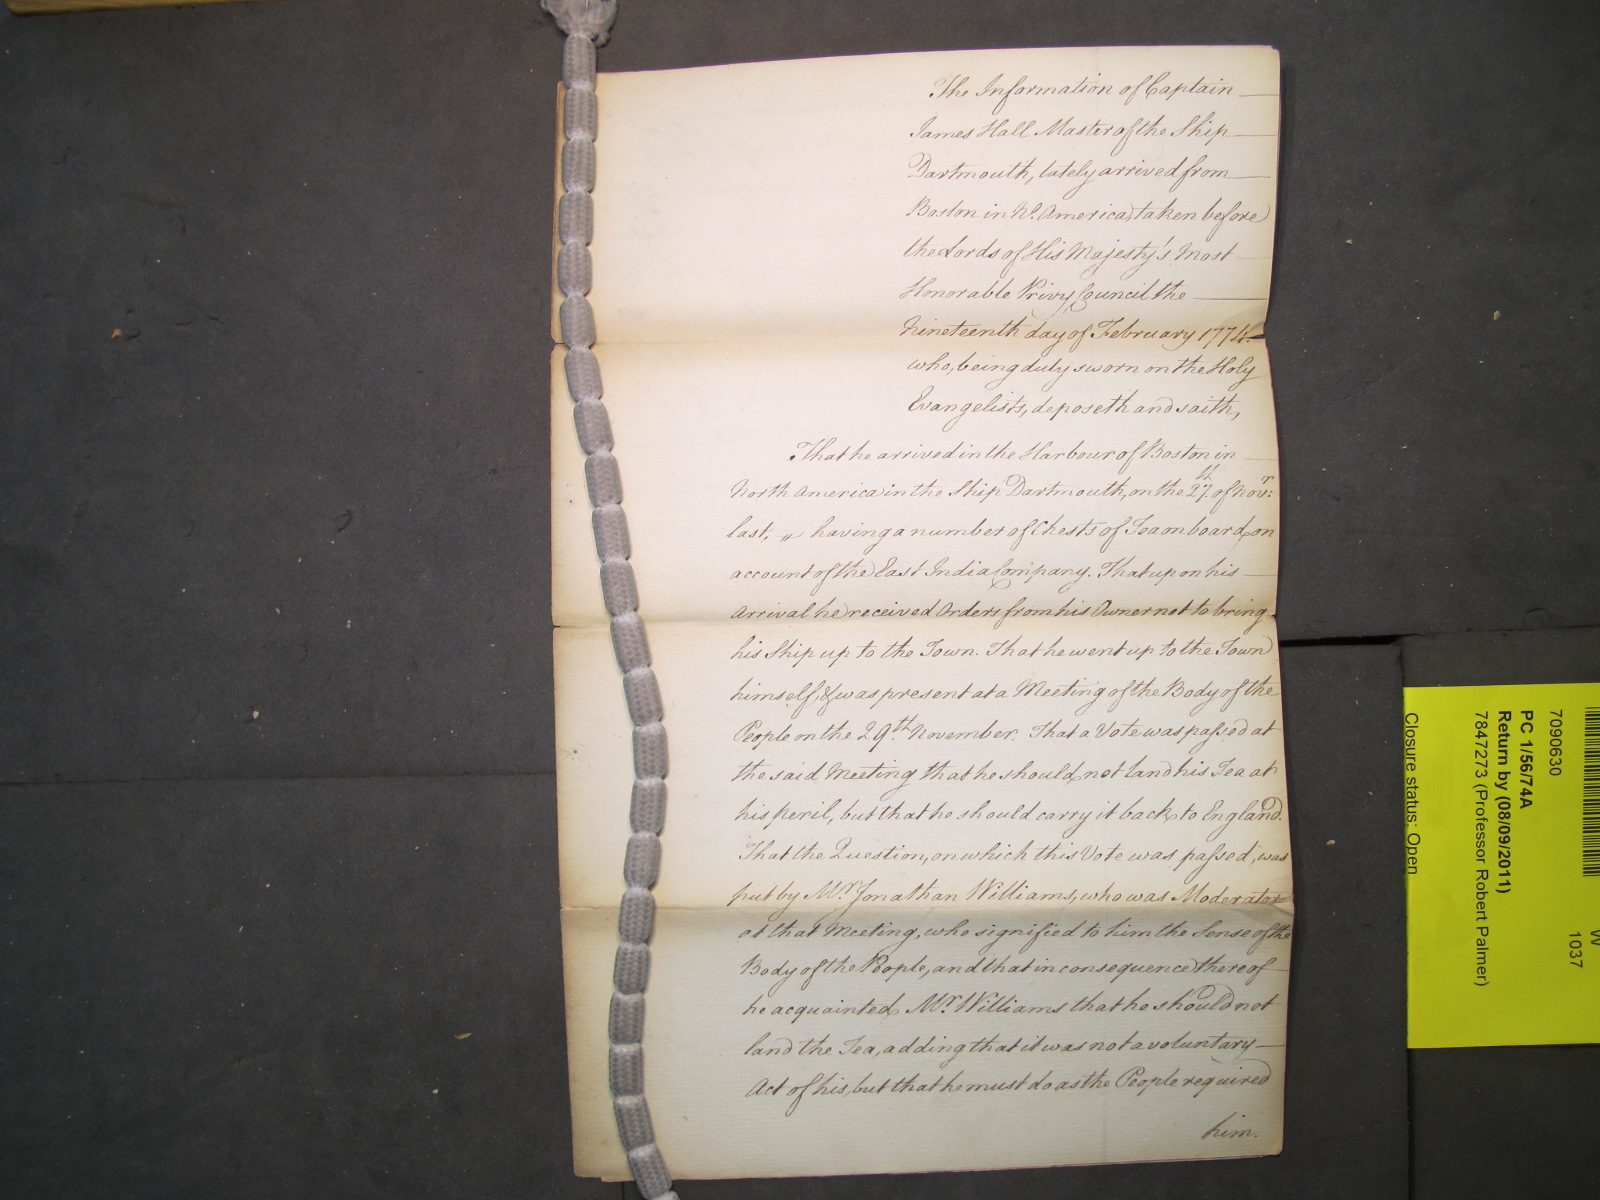 The Information of Captain
James Hall Master of the Ship
Dartmouth, lately arrived from
Boston in No. America, taken before
the Lords of His Majesty's Most
Honorable Privy Council the
Nineteenth day of February 1774.
who, being duly sworn on the Holy
Evangelists, deposeth and saith,
That he arrived in the Harbour of Boston in
North America in the Ship Dartmouth, on the 27th. of Novr:
last, having a number of Chests of Tea on board, on
account of the East India Company. That upon his
Arrival he received Orders from his Owner not to bring
his Ship up to the Town. That he went up to the Town
himself, & was present at a Meeting of the Body of the
People on the 29th. November. That a Vote was passed at
the said Meeting that he should not land his Tea at
his peril, but that he should carry it back to England.
That the Question, on which this Vote was passed, was
put by Mr. Jonathan Williams, who was Moderator
at that Meeting, who signified to him the Sense of the
Body of the People, and that in consequence thereof
he acquainted Mr. Williams that he should not
land the Tea, adding that it was not a voluntary
Act of his, but that he must do as the People required
him.
W
1037
7090630
PC 1/56/74A
Return by (08/09/2011)
7847273 (Professor Robert Palmer)
Closure status: Open